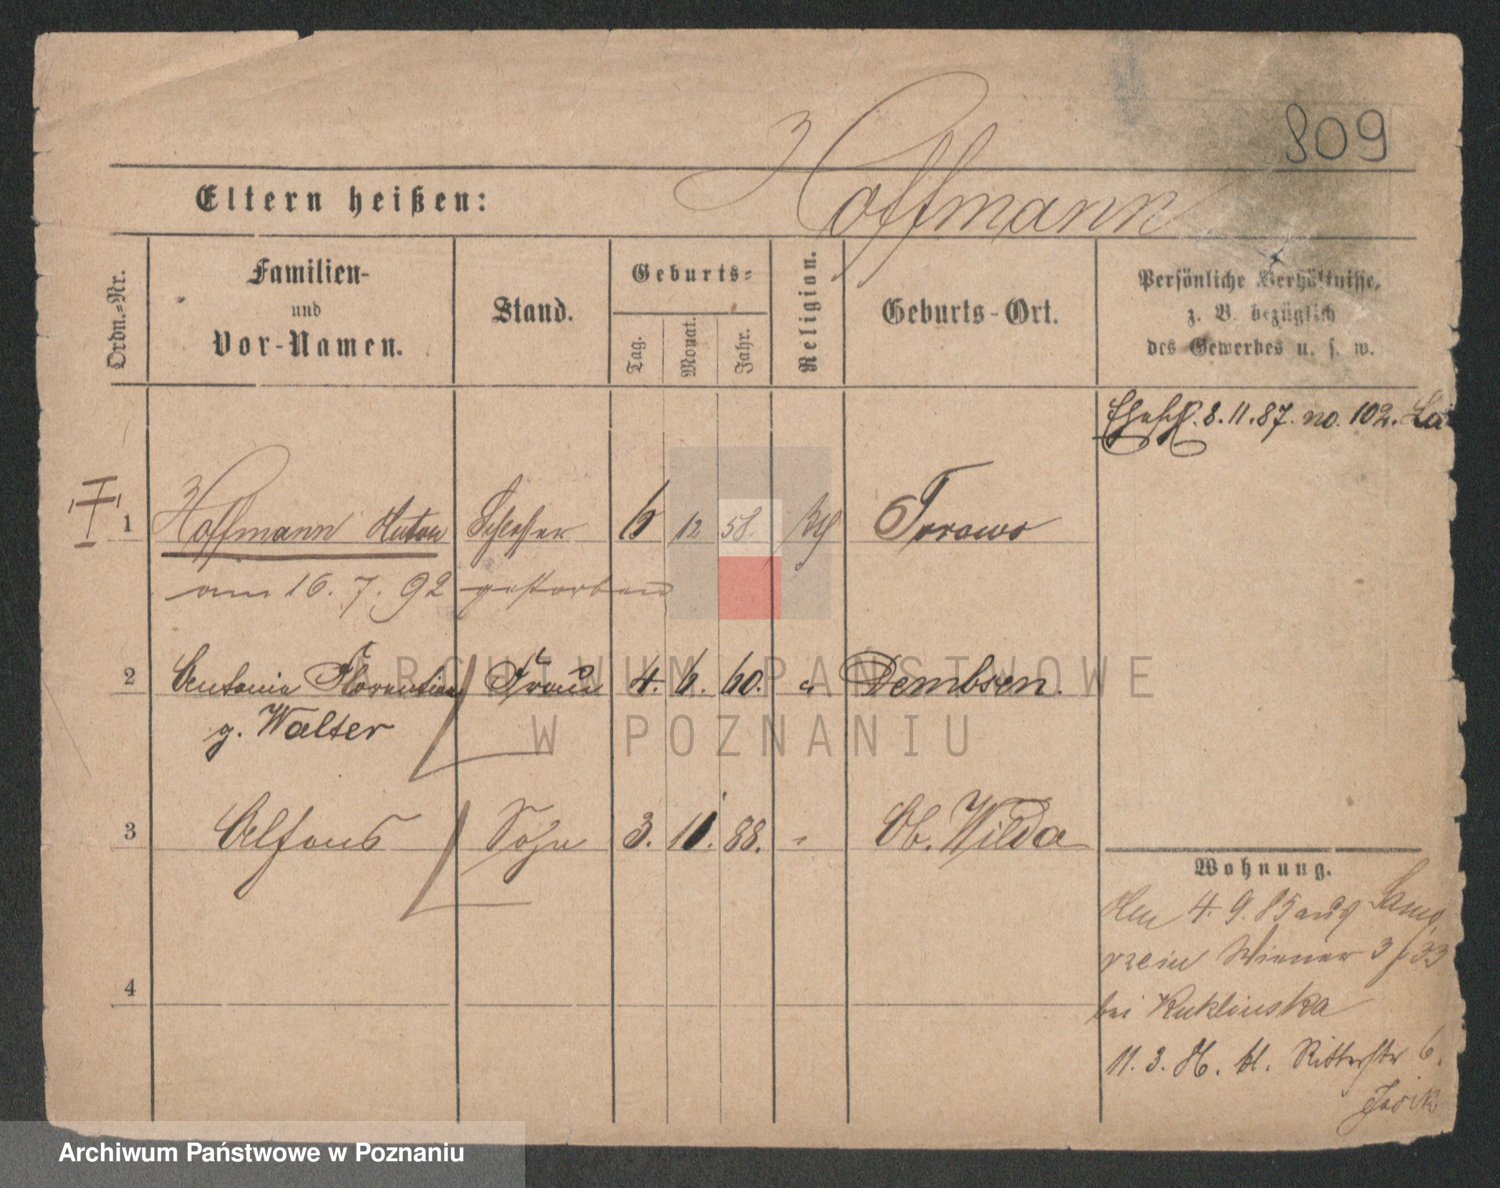 809
Eltern heißen: Hoffmann
Ordn.-Nr.
Familien-
und
Vor-Namen.
Stand.
Geburts-
Tag.
Monat.
Jahr.
Religion.
Geburts-Ort.
Persönliche Verhältnisse,
z. B. bezüglich
des Gewerbes u. s. w.
8.11.87. no. 102.
1 Hoffmann Anton Schlosser 6 12 58. Torowo
am 16. 7. 92 gestorben
2 Antonie Florentine Frau 4. 6. 60. " Dembsen.
g. Walter
3 Alfons Sohn 3. 11. 88. " Ob. Wilda
4
Wohnung.
4. 9. 85 aus
Wiener 3
bei Kuklinska
11. 3. kl. Ritterstr 6.
ARCHIWUM PAŃSTWOWE
W POZNANIU
Archiwum Państwowe w Poznaniu